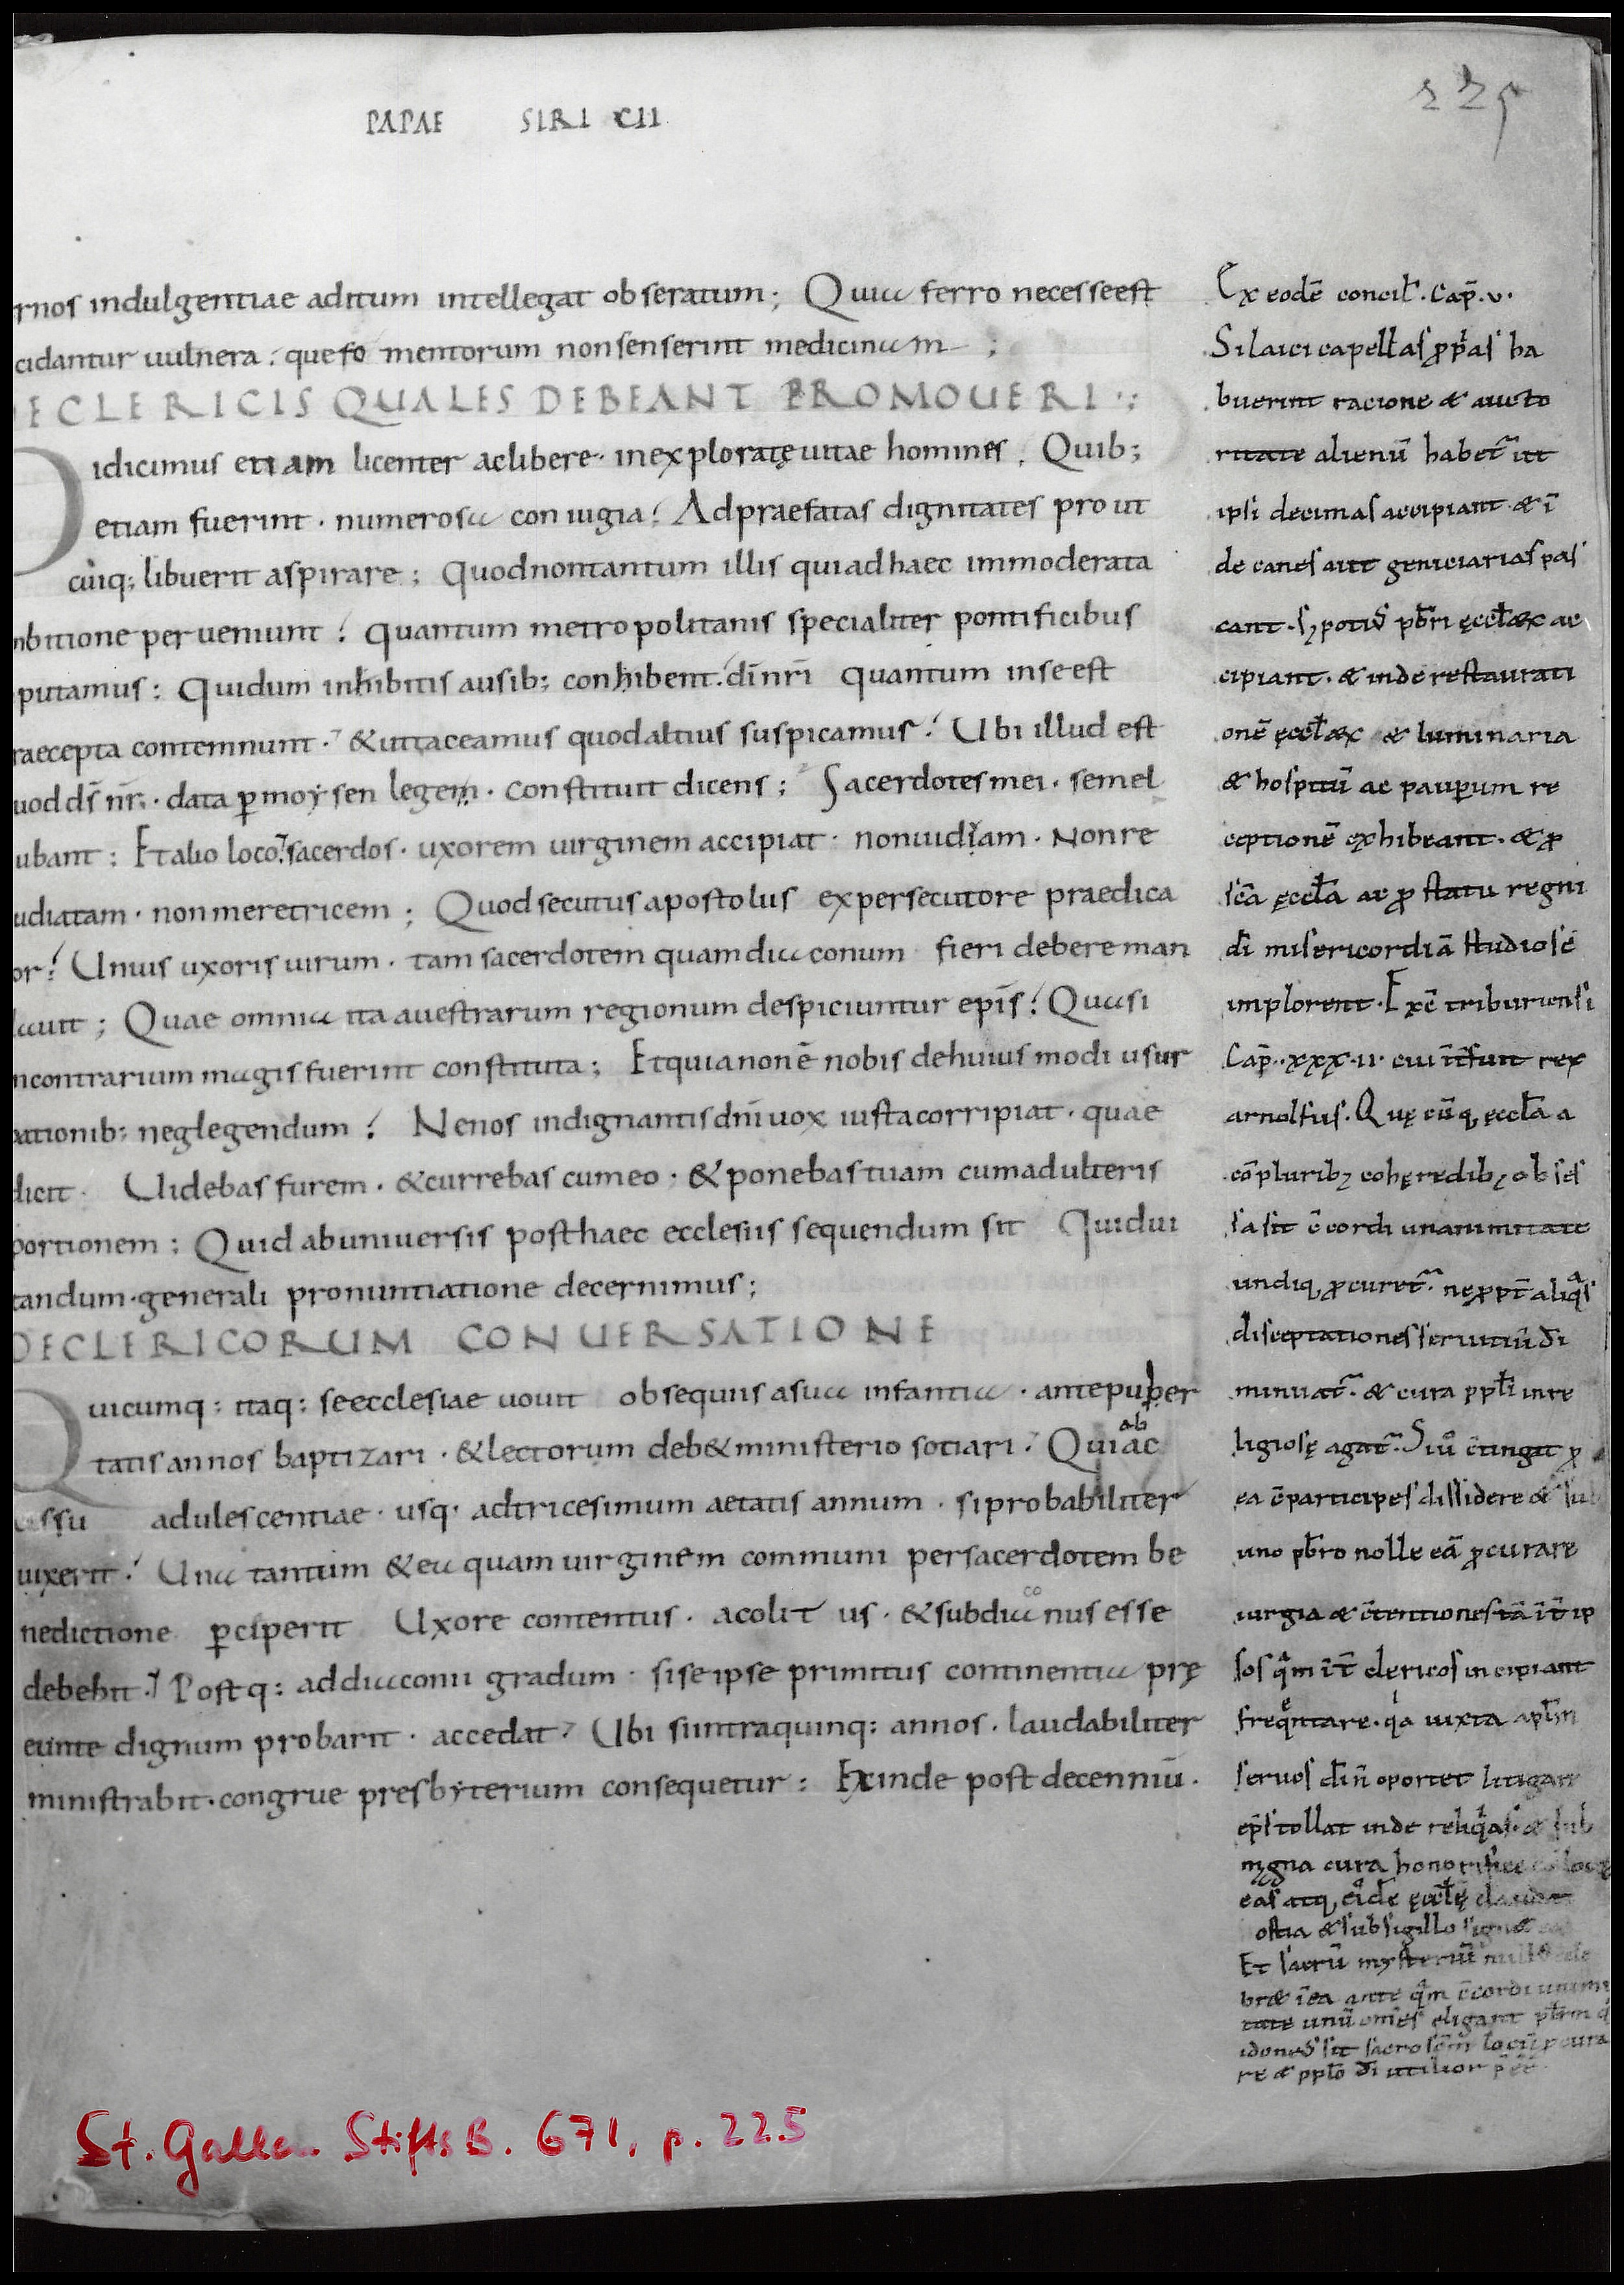 225
PAPAE SIRI CII
rnos indulgentiae aditum intellegat obseratum; Quia ferro necesseest
cidantur uulnera. quefo mentorum nonsenserint medicinam ;
DECLERICIS QUALES DEBEANT PROMOUERI
Didicimus etiam licenter aclibere. inexploratę uitae homines. Quib;
etiam fuerint. numerosa coniugia. Adpraefatas dignitates prout
cuiq; libuerit aspirare; Quodnontantum illis quiadhaec immoderata
mbitione perueniunt. quantum metropolitanis specialiter pontificibus
putamus; Quidum inhibitis ausib; conhibent. di nri quantum inseest
raecepta contemnunt. &uttaceamus quodaltius suspicamus. Ubi illud est
uod ds nr. data p moysen legem. constituit dicens; Sacerdotesmei. semel
ubant; Etalio loco. sacerdos. uxorem uirginem accipiat. nonuiduam. Nonre
udiatam. nonmeretricem; Quodsecutus apostolus expersecutore praedica
or. Unius uxoris uirum. tam sacerdotem quamdiaconum fieri debere man
dauit; Quae omnia ita auestrarum regionum despiciuntur epis. Quasi
ncontrarium magis fuerint constituta; Etquianonē nobis dehuius modi usur
pationib; neglegendum. Nenos indignantis dni uox iustacorripiat. quae
dicit. Uidebas furem. &currebas cumeo. &ponebas tuam cumadulteris
portionem; Quid abuniuersis posthaec ecclesiis sequendum sit Quidui
tandum. generali pronuntiatione decernimus;
DECLERICORUM CONUERSATIONE
Quicumq; itaq; seecclesiae uouit obsequiis asua infantia. antepuber
tatis annos baptizari. &lectorum deb&ministerio sociari. Quiac
ab
essu adulescentiae. usq. adtricesimum aetatis annum. siprobabiliter
uixerit. Una tantum &ea quam uirginem communi persacerdotem be
nedictione pciperit Uxore contentus. acolit us. &subdia nus esse
co
debebit. Postq; addiaconii gradum. siseipse primitus continentia prę
eunte dignum probarit. accedat. Ubi siintraquinq; annos. laudabiliter
ministrabit. congrue presbyterium consequetur; Exinde post decenniū.
Ex eodē concil. Cap. v.
Si laici capellas ppas ha
buerint racione & aucto
ritate alienū habet ut
ipsi decimas accipiant & ī
de canes aut geniciarias pas
cant. s; poti pbri ęccłæ ac
cipiant. & inde restaurati
onē ęccłæ & luminaria
& hospitū ac pauperum re
ceptionē exhibeant. & p
scā ęccła ac p statu regni
di misericordiā studiose
implorent. Ex c triburiensi
Cap. xxx. ii. cui īt fuit rex
arnolfus. Quę cūq, ęccła a
cōpluribz cohęredibz obses
sa sit c cordi unanimitate
undiq, p curet. ne ppt aliqs
disceptationes seruitiū di
minuat. & cura ppli inre
ligiosę agat. Si u c tingat p
ea c participes dissidere & sub
uno pbro nolle eā p curare
iurgia & c tentiones tā īt ip
sos qm īt clericos incipiant
freqntare. qa iuxta aplm
seruos di ñ oportet litigare
eps tollat inde reliqas. & sub
magna cura honorifice
eas atq, eide ęccłę claudat
ostia & sub sigillo sign&
Et sacrū mysteriū
br& ī ea ante qm c cordi unimi
tate unū oms eligant pbrm q
idone sit sacro scm locū p cura
re & pplo di utilior
St. Gallen Stifts B. 671, p. 225